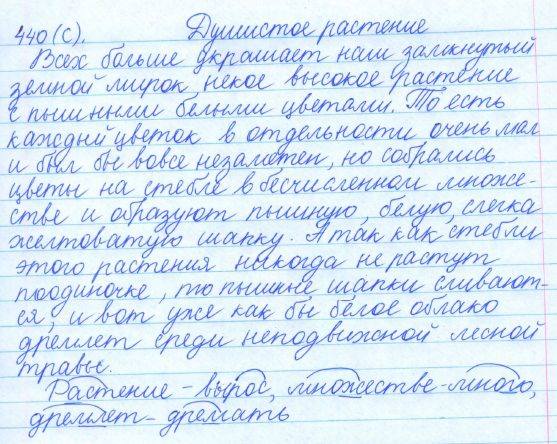 440(С). Душистое растение
Всех больше украшает наш замкнутый
земной мирок некое высокое растение
с пышными белыми цветами. То есть
каждый цветок в отдельности очень мал
и был бы вовсе незаметен, но собрались
цветы на стебле в бесчисленном множе-
стве и образуют пышную, белую, слегка
желтоватую шапку. А так как стебли
этого растения никогда не растут
поодиночке, то пышные шапки сливают-
ся, и вот уже как бы белое облако
дремлет среди неподвижной лесной
травы.
Растение - вырос, множестве - много,
дремлет - дремать